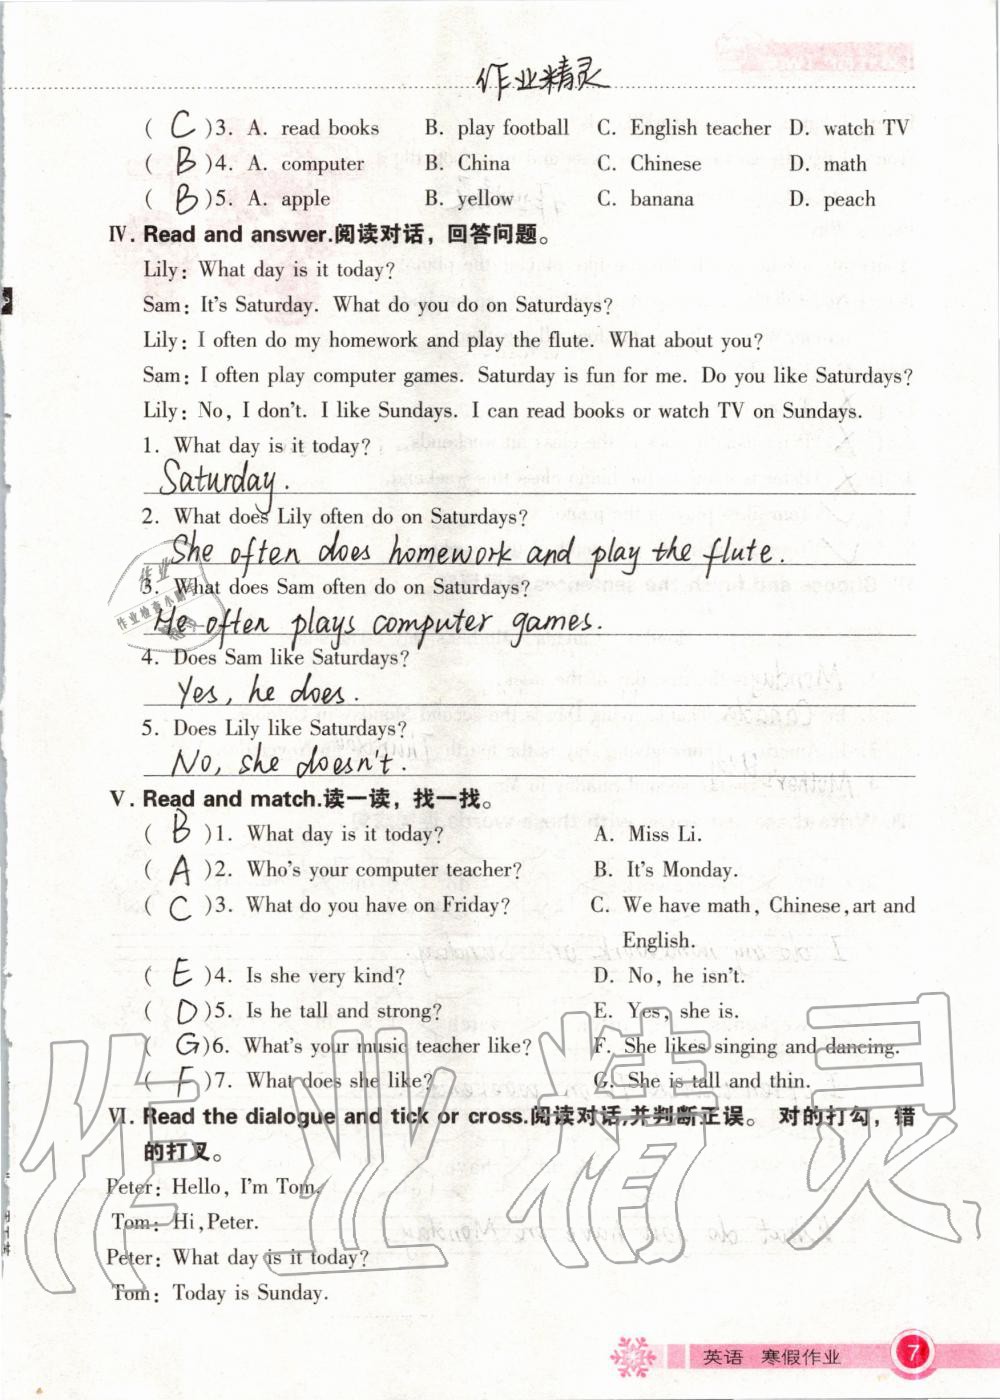 作业精灵
( C )3. A. read books B. play football C. English teacher D. watch TV
( B )4. A. computer B. China C. Chinese D. math
( B )5. A. apple B. yellow C. banana D. peach
Ⅳ. Read and answer.阅读对话，回答问题。
Lily: What day is it today?
Sam: It's Saturday. What do you do on Saturdays?
Lily: I often do my homework and play the flute. What about you?
Sam: I often play computer games. Saturday is fun for me. Do you like Saturdays?
Lily: No, I don't. I like Sundays. I can read books or watch TV on Sundays.
1. What day is it today?
Saturday.
2. What does Lily often do on Saturdays?
She often does homework and play the flute.
3. What does Sam often do on Saturdays?
He often plays computer games.
4. Does Sam like Saturdays?
Yes, he does.
5. Does Lily like Saturdays?
No, she doesn't.
Ⅴ. Read and match.读一读，找一找。
( B )1. What day is it today? A. Miss Li.
( A )2. Who's your computer teacher? B. It's Monday.
( C )3. What do you have on Friday? C. We have math, Chinese, art and
English.
( E )4. Is she very kind? D. No, he isn't.
( D )5. Is he tall and strong? E. Yes, she is.
( G )6. What's your music teacher like? F. She likes singing and dancing.
( F )7. What does she like? G. She is tall and thin.
Ⅵ. Read the dialogue and tick or cross.阅读对话,并判断正误。 对的打勾，错
的打叉。
Peter: Hello, I'm Tom.
Tom: Hi, Peter.
Peter: What day is it today?
Tom: Today is Sunday.
作业精灵
英语 寒假作业 7